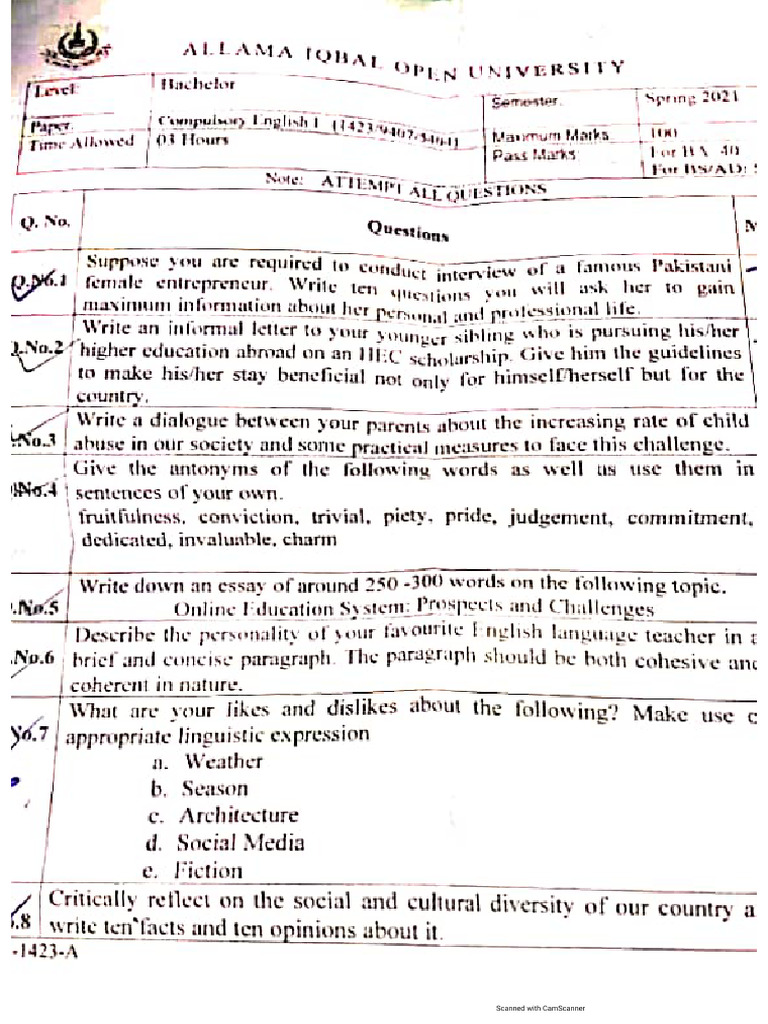 ALLAMA IQBAL OPEN UNIVERSITY
Level: Bachelor
Semester: Spring 2021
Paper: Compulsory English I (1423/9407/5404)
Maximum Marks: 100
Time Allowed 03 Hours
Pass Marks: For BA 40
For BS/AD:
Note: ATTEMPT ALL QUESTIONS
Q. No. Questions
Q.No.1 Suppose you are required to conduct interview of a famous Pakistani
female entrepreneur. Write ten questions you will ask her to gain
maximum information about her personal and professional life.
Write an informal letter to your younger sibling who is pursuing his/her
.No.2 higher education abroad on an HEC scholarship. Give him the guidelines
to make his/her stay beneficial not only for himself/herself but for the
country.
Write a dialogue between your parents about the increasing rate of child
.No.3 abuse in our society and some practical measures to face this challenge.
Give the antonyms of the following words as well as use them in
No.4 sentences of your own.
fruitfulness, conviction, trivial, piety, pride, judgement, commitment,
dedicated, invaluable, charm
Write down an essay of around 250 -300 words on the following topic.
.No.5 Online Education System: Prospects and Challenges
Describe the personality of your favourite English language teacher in a
.No.6 brief and concise paragraph. The paragraph should be both cohesive and
coherent in nature.
What are your likes and dislikes about the following? Make use
No.7 appropriate linguistic expression
a. Weather
b. Season
c. Architecture
d. Social Media
e. Fiction
Critically reflect on the social and cultural diversity of our country a
.8 write ten facts and ten opinions about it.
-1423-A
Scanned with CamScanner